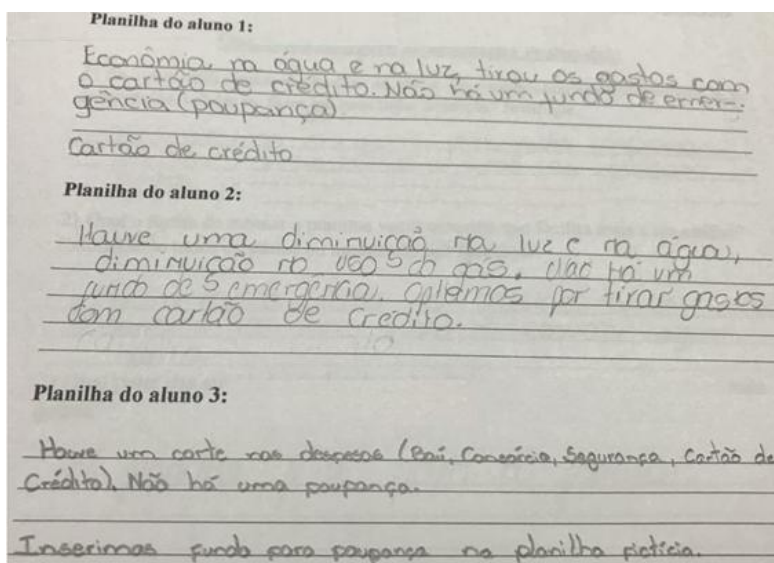 Planilha do aluno 1:
Econômia na água e na luz, tirou os gastos com
o cartão de crédito. Não há um fundo de emer-
gência (poupança)
Cartão de crédito
Planilha do aluno 2:
Hauve uma diminuição na luz e na água,
diminuição no uso do gás. Não há um
fundo de emergência. optemos por tirar gastos
com cartão de crédito.
Planilha do aluno 3:
Houve um corte nas despesas (Baú, Consórcio, Segurança, Cartão de
Crédito). Não há uma poupança.
Inserimos fundo para poupança na planilha fictícia.